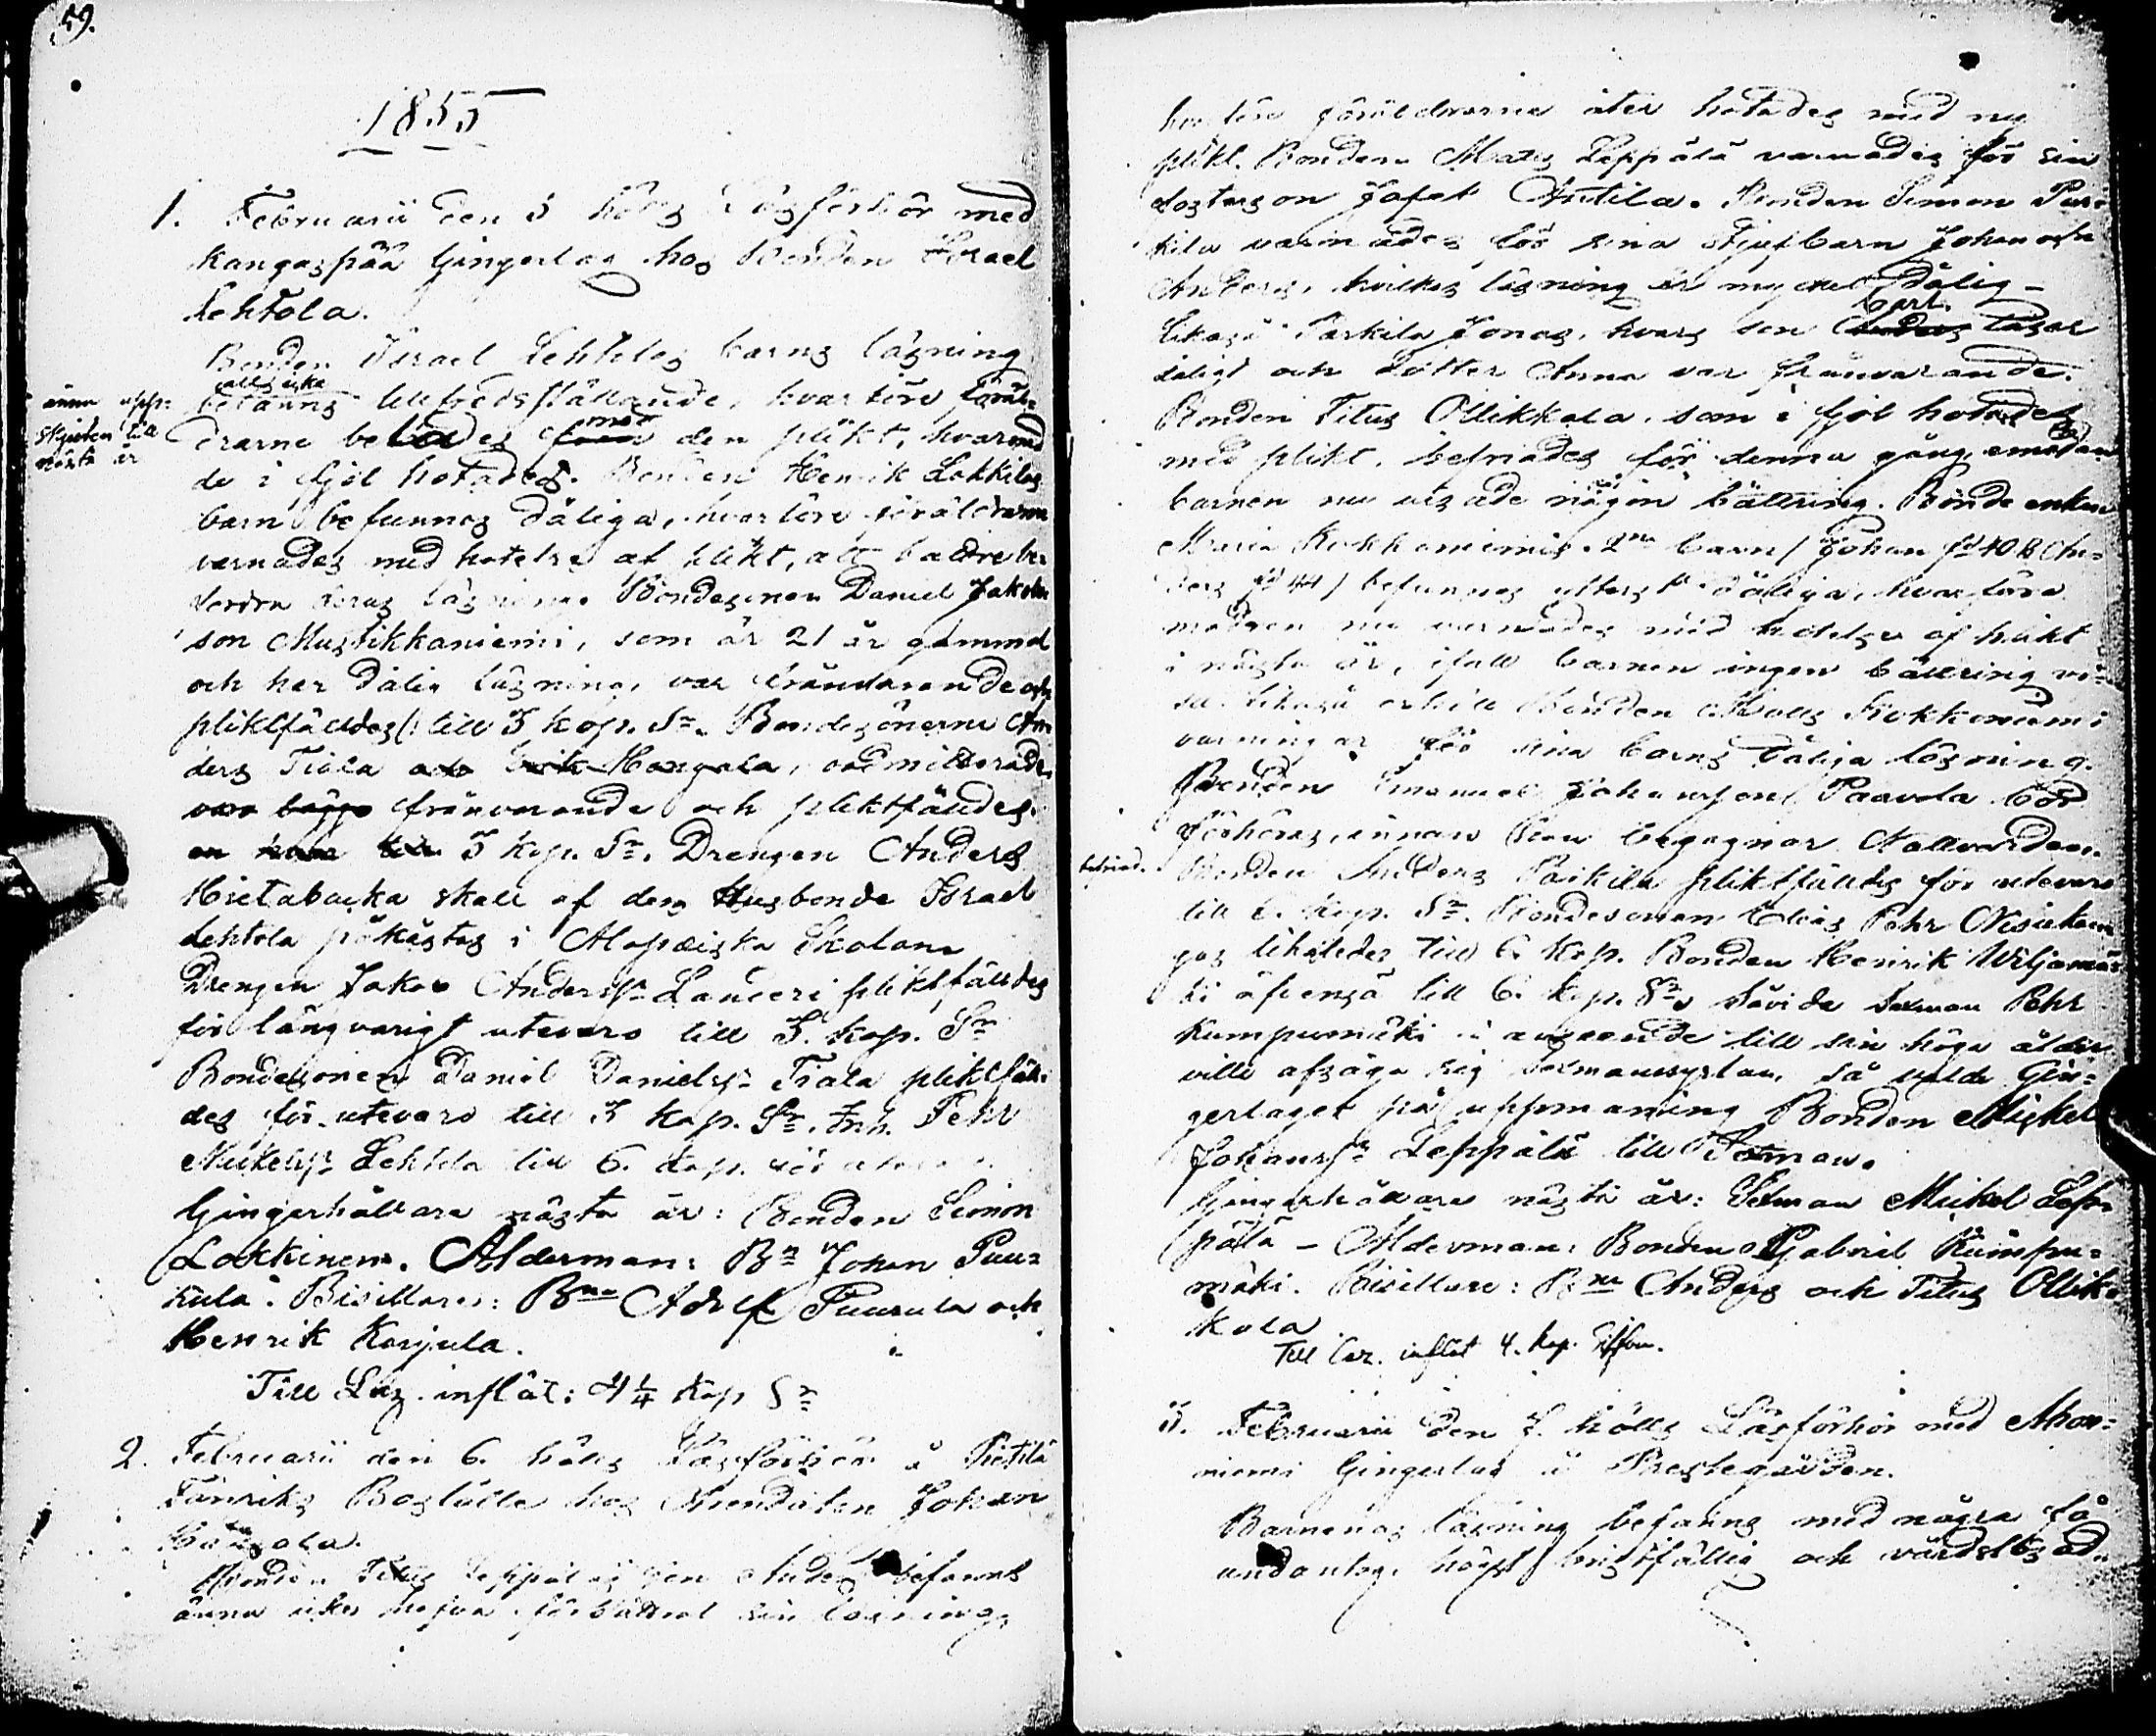 59.
1855
1. Februarii den 5 hölls Läsförhör med
Kangaspää Gingerlag hos Bonden Israel
Lehtola.
Bonden Israel Lehtolas barns läsning
allsicke
befanns tillfredsställande, hvarföre föräl-
ännu upp-
skjuten till
nästa år
drarne belades med den plikt, hvarmed
de i fjol hotades. Bonden Henrik Lokkilas
barn befunnos dåliga, hvarföre föräldrarne
varnades med hotelse af plikt, att bättre be-
fordra deras läsning. Bondesonen Daniel Jakobs
son Mustikkaniemi, som är 21 år gammal
och har dålig läsning, var frånvarande och
pliktfälldes till 3 kop. Sr. Bondesönerne An
ders Tiala och Erik Kangala, oadmitterade,
var bägge frånvarande och pliktfälldes.
3 kop. Sr. Drengen Anders
Hietabacka skall af dess Husbonde Israel
Lehtola påkostas i Alapäiska Skolan
Drengen Jakob Anderss. Lanceri pliktfälldes
för långvarigt utevaro till 3. kop. Sr
Bondesonen Daniel Danielss. Tiala pliktfäll-
des för utevaro till 3 kop. Sr. Inh. Pehr
Mickelss. Lehtola till 6. kop. för
Gingerhållare nästa år: Bonden Simon
Lokkinen. Alderman: Bn Johan Puu-
kula. Bisittare: Bne Adolf Puurula och
Henrik Korjula.
Till Läz. inflöt: 4 1/4 Kop Sr
2. Februarii den 6. hölls Läsförhör å Pietilä
Fänriks Boställe hos Arendatorn Johan
Kangola.
Bonden Titus Leppäläs son Anders befanns
ännu icke hafva förbättrat sin läsning,
hvarföre föräldrarne åter hotades med ny
plikt. Bonden Matts Leppälä varnades för sin
dotterson Jafet Antila. Bonden Simon Par-
kila varnades för sina styfbarn Johan och
Anders, hvilkas läsning är mycket dålig –
Karl
Likaså Parkila Jonas, hvars son Anders läser
dåligt och dotter Anna var frånvarande.
Bonden Titus Ollikkala, som i fjol hotades
med plikt, befriades för denna gång, emedan
barnen nu visade någon bättring. Bonde enkan
Maria Kokkoniemis 2ne barn (Johan fd 40 & An-
ders fd 44) befunnos ytterst dåliga, hvarföre
modren nu varnades med hotelse af plikt
i nästa år, ifall barnen ingen bättring vi-
sa. Likaså erhöll Bonden Matts Kokkoniemi
varningar för sina barns dåliga läsning.
Bonden Emanuel Johansson Paavola bör
förhöras, innan han begagnar Nattvarden.
befriad.
Bonden Anders Parkila pliktfälldes för utevaro
till 6. kop. Sr. Bondesonen Elias Pehr Oksakan
gas likaledes till 6. Kop. Bonden Henrik Wiljamäs
ki äfvenså till 6. kop. Sr. Såvida Sexman Pehr
Kumpumäki i anseende till sin höga ålder
ville afsäga sig Sexmansysslan, så valde Gin-
gerlaget på uppmaning Bonden Mickel
Johanss. Leppälä till Sexman.
Gingerhållare nästa år: Sexman Mickel Lep-
pälä – Alderman: Bonden Gabriel Kumpu-
mäki. Bisittare: Bne Anders och Titus Ollik-
kala
Till Läz. inflöt 4. kop. Silfver.
3. Februarii den 7. hölls Läsförhör med Ahon-
niemi Gingerlag å Prestegården.
Barnenas läsning befanns med några få
undantag, högst bristfällig och vårdslösad.